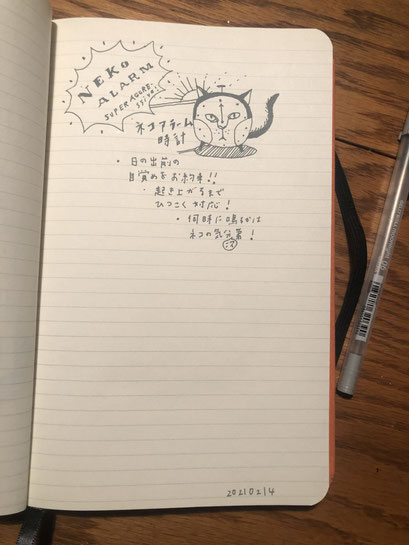 NEKO
ALARM
SUPER AGGRE-
SSIVE!
ネコアラーム
時計
・日の出前の
目覚めをお約束!!
・起き上がるまで
ひつこく対応!
・何時に鳴るかは
ネコの気分第!
次
20210214